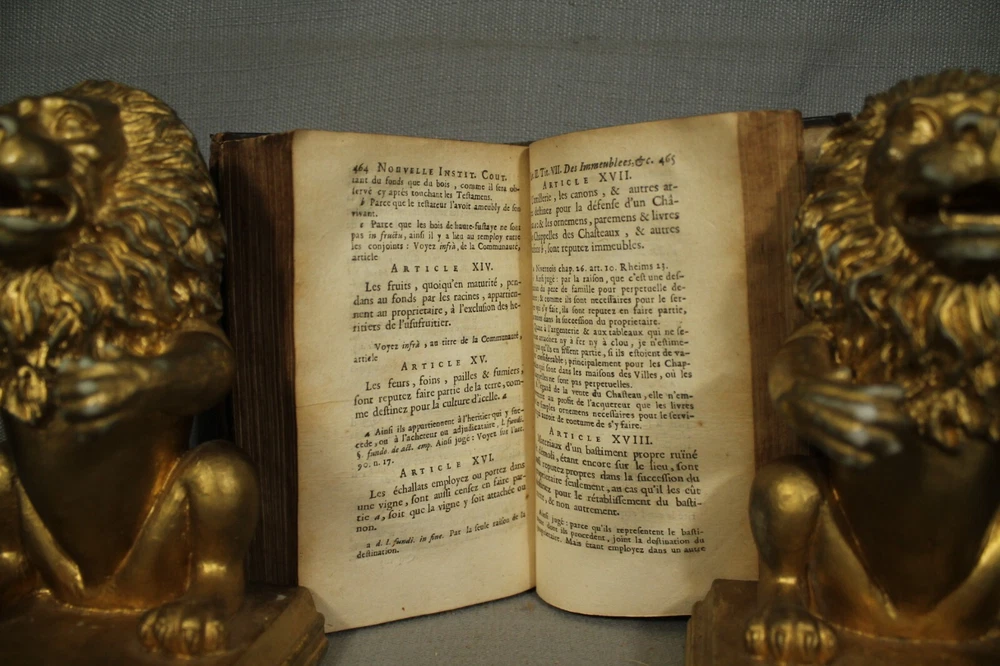 464 NOUVELLE INSTIT. COUT.
tant du fonds que du bois, comme il sera ob-
servé cy aprés touchant les Testament.
b Parce que le testateur l'avoit ameubly de son
vivant.
c Parce que les bois de haute-fustaye ne sont
pas in fructu, ainsi il y a lieu au remploy entre
les conjoints : Voyez infrà, de la Communauté,
article
ARTICLE XIV.
Les fruits, quoiqu'en maturité, pen-
dans au fonds par les racines, appartien-
nent au proprietaire, à l'exclusion des he-
ritiers de l'usufruitier.
Voyez infrà, au titre de la Communauté,
article
ARTICLE XV.
Les feurs, foins, pailles & fumiers,
sont reputez faire partie de la terre, com-
me destinez pour la culture d'icelle. a
a Ainsi ils appartiennent à l'heritier qui y suc-
cede, ou à l'acheteur ou adjudicataire, l. fundi,
§. fundo. de act. emp. Ainsi jugé : Voyez
90. n. 17.
ARTICLE XVI.
Les échallats employez ou portez dans
une vigne, sont aussi censez en faire par-
tie a, soit que la vigne y soit attachée ou
non.
a d. l. fundi. in fine. Par la seule raison de la
destination.
II. Tit. VII. Des Immeubles, &c. 465
ARTICLE XVII.
L'artillerie, les canons, & autres ar-
mes destinez pour la défense d'un Châ-
teau & les ornemens, paremens & livres
des Chappelles des Chasteaux, & autres
b, sont reputez immeubles.
Nivernois chap. 26. art. 10. Rheims 23.
Ainsi jugé : par la raison, que c'est une des-
tination du pere de famille pour perpetuelle de-
meure, & comme ils sont necessaires pour le ser-
vice qui s'y fait, ils sont reputez en faire partie,
dans la succession du proprietaire.
Quant à l'argenterie & aux tableaux qui ne se-
roient attachez ny à fer ny à clou, je n'estime-
rois qu'ils en fissent partie, s'ils estoient de va-
leur considerable ; principalement pour les Chap-
pelles qui sont dans les maisons des Villes, où les
ne sont pas perpetuelles.
A l'égard de la vente du Chasteau, elle n'em-
porte au profit de l'acquereur que les livres
& simples ornemens necessaires pour le servi-
ce qui auroit de coutume de s'y faire.
ARTICLE XVIII.
Materiaux d'un bastiment propre ruïné
ou demoli, étant encore sur le lieu, sont
reputez propres dans la succession du
proprietaire seulement, au cas qu'il les eût
pour le rétablissement du basti-
ment, & non autrement.
Ainsi jugé : parce qu'ils representent le basti-
ment dont ils procedent, joint la destination du
proprietaire. Mais étant employez dans un autre